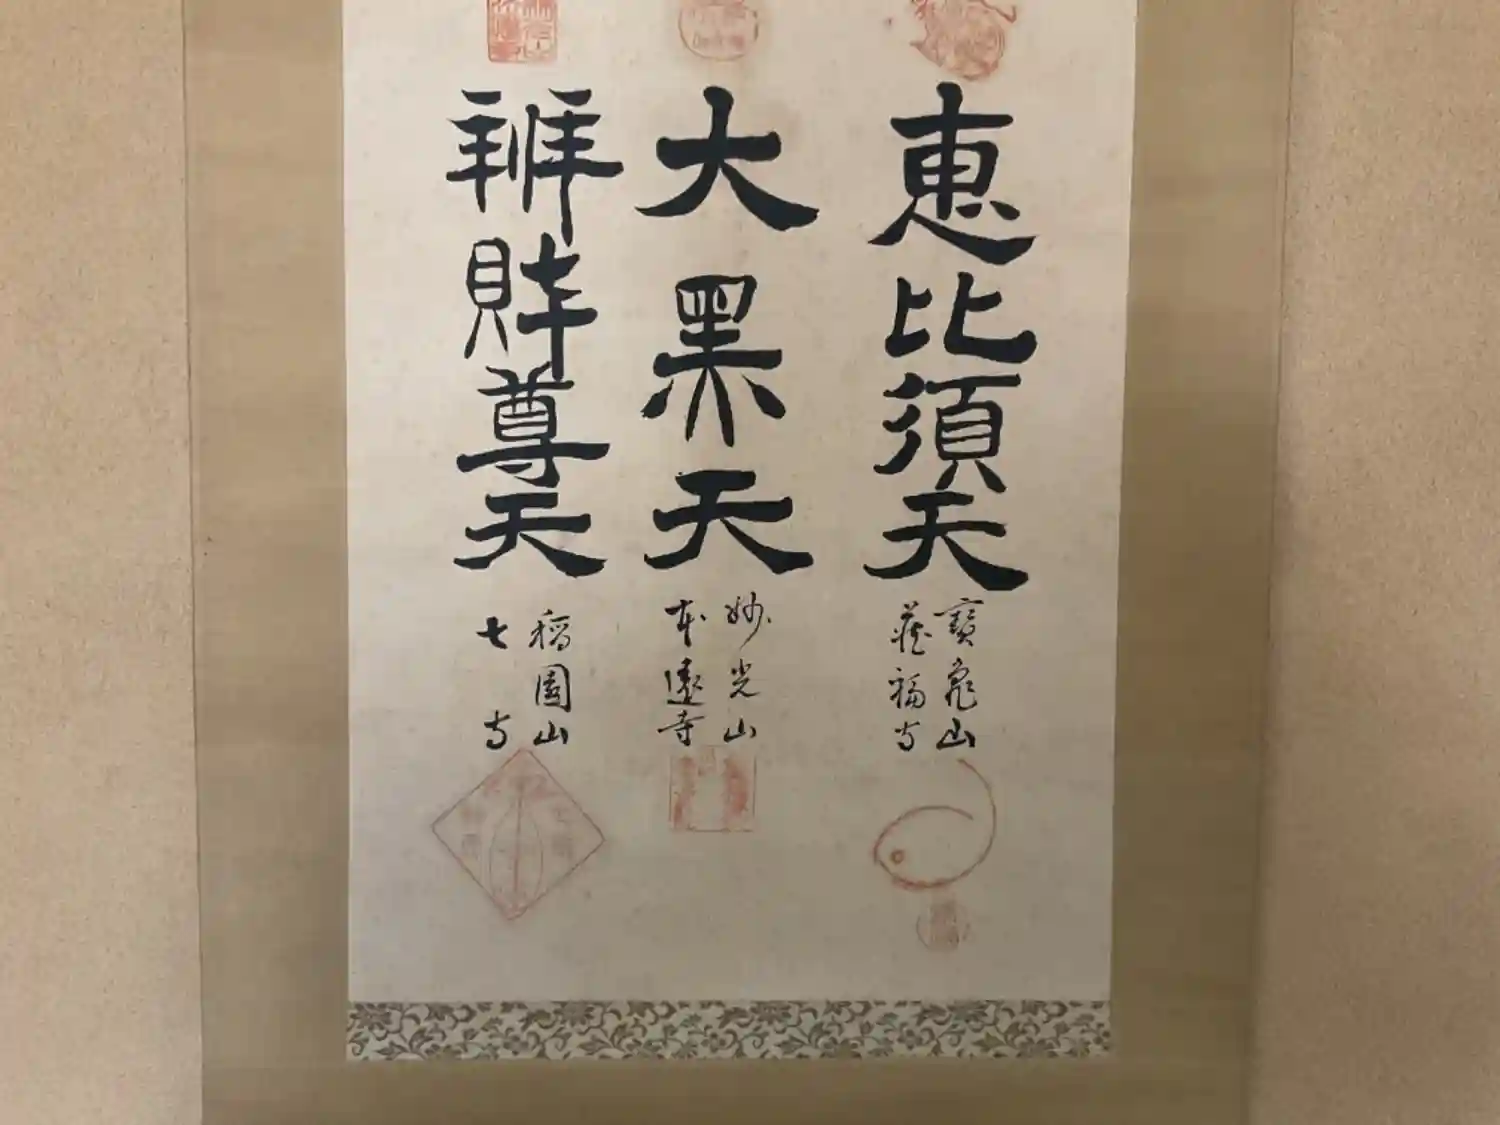 恵比須天
寶龜山
蔵福寺
大黒天
妙光山
本遠寺
辨財尊天
稲園山
七寺